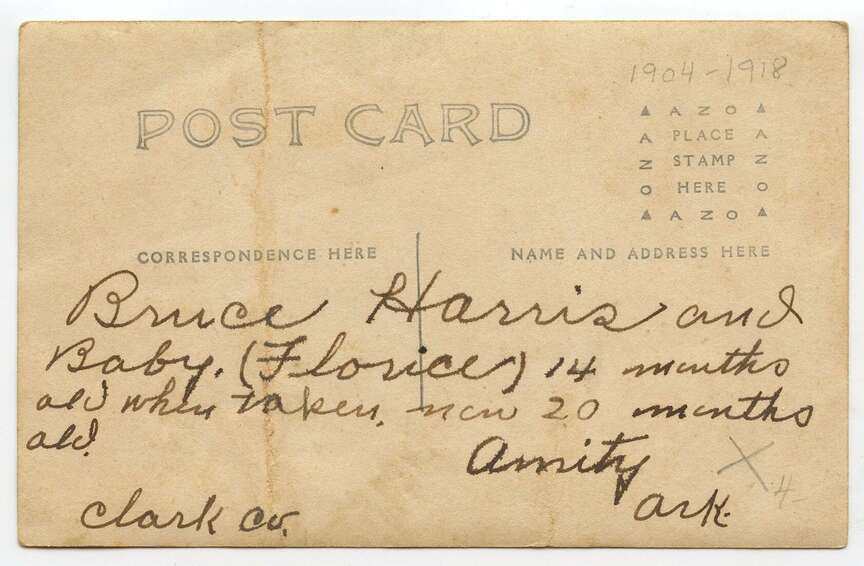 1904-1918
POST CARD
AZO
PLACE
STAMP
HERE
AZO
AZO
AZO
CORRESPONDENCE HERE
NAME AND ADDRESS HERE
Bruce Harris and
Baby. (Florice) 14 months
old when taken, now 20 months
old.
Amity
Ark.
Clark Co.
X 4-